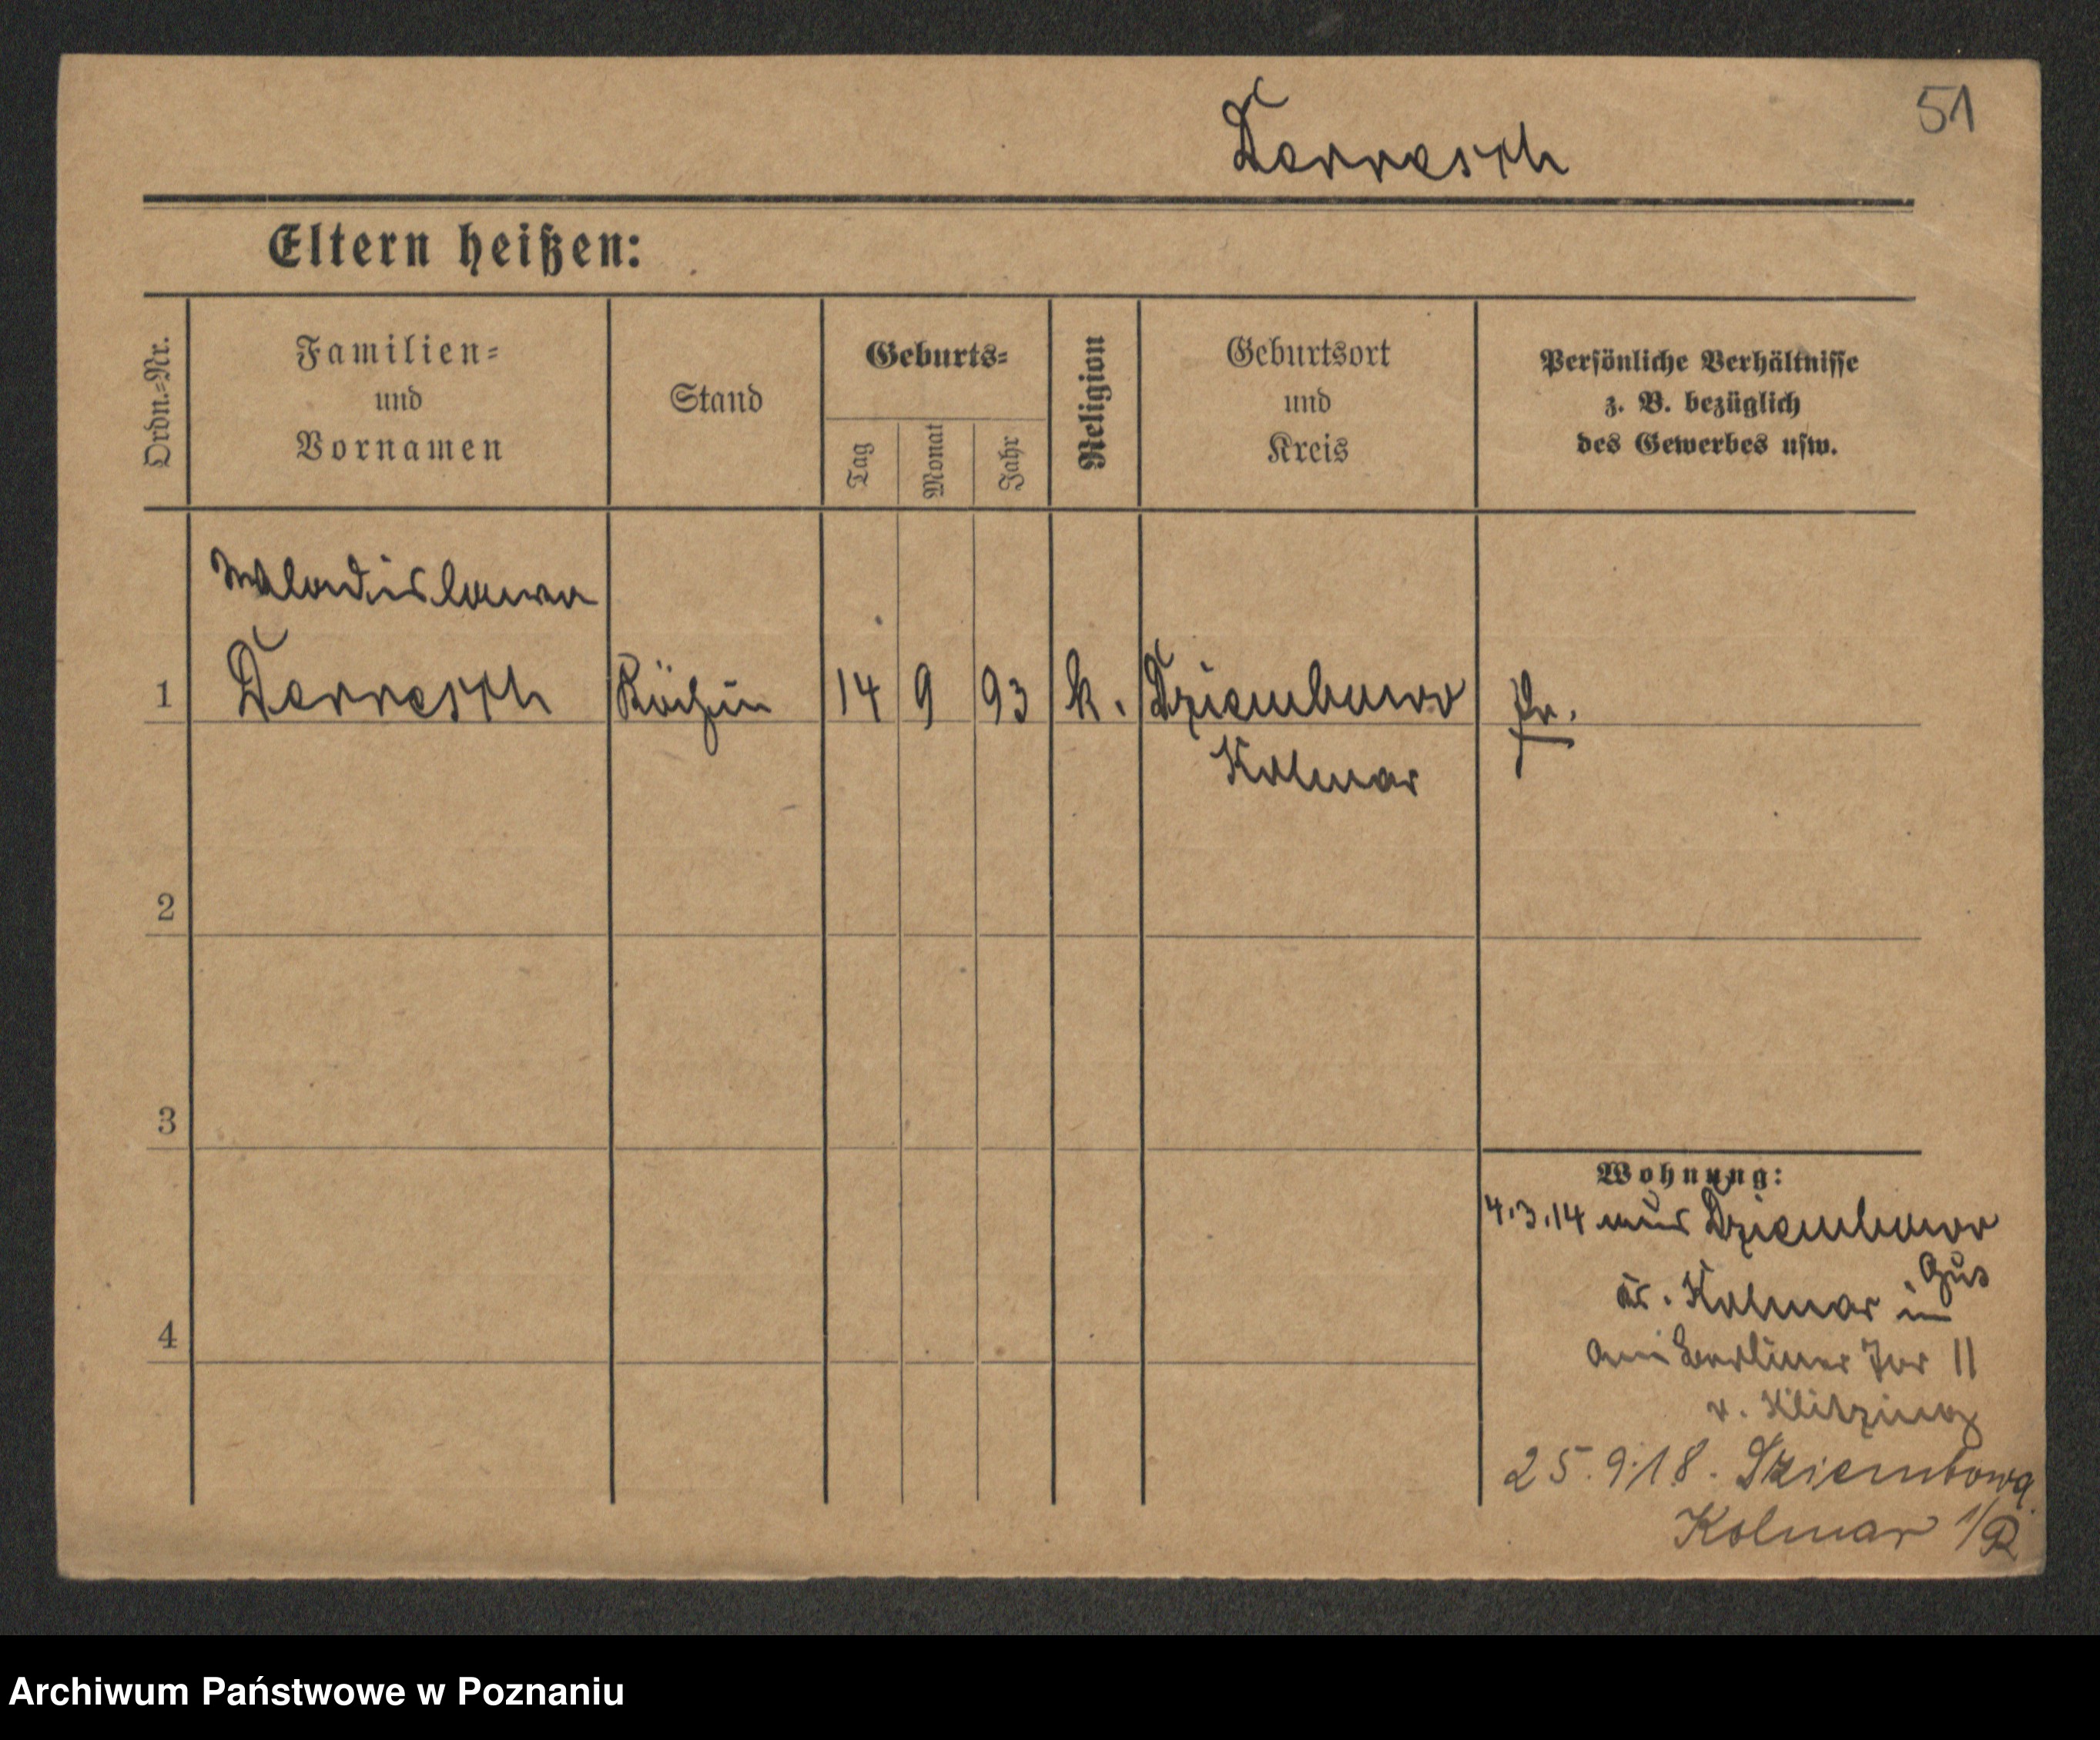 51
Derresch
Eltern heißen:
Ordn.-Nr.
Familien-
und
Vornamen
Stand
Geburts-
Tag
Monat
Jahr
Religion
Geburtsort
und
Kreis
Persönliche Verhältnisse
z. B. bezüglich
des Gewerbes usw.
Wladislawa
1 Derresch Köchin 14 9 93 k. Dziembowo Pr.
Kolmar
2
3
4
Wohnung:
4.3.14 aus Dziembowo
Kr. Kolmar in
Am Berliner Tor 11
v. Klitzing
25.9.18. Dziembowo
Kolmar
Archiwum Państwowe w Poznaniu